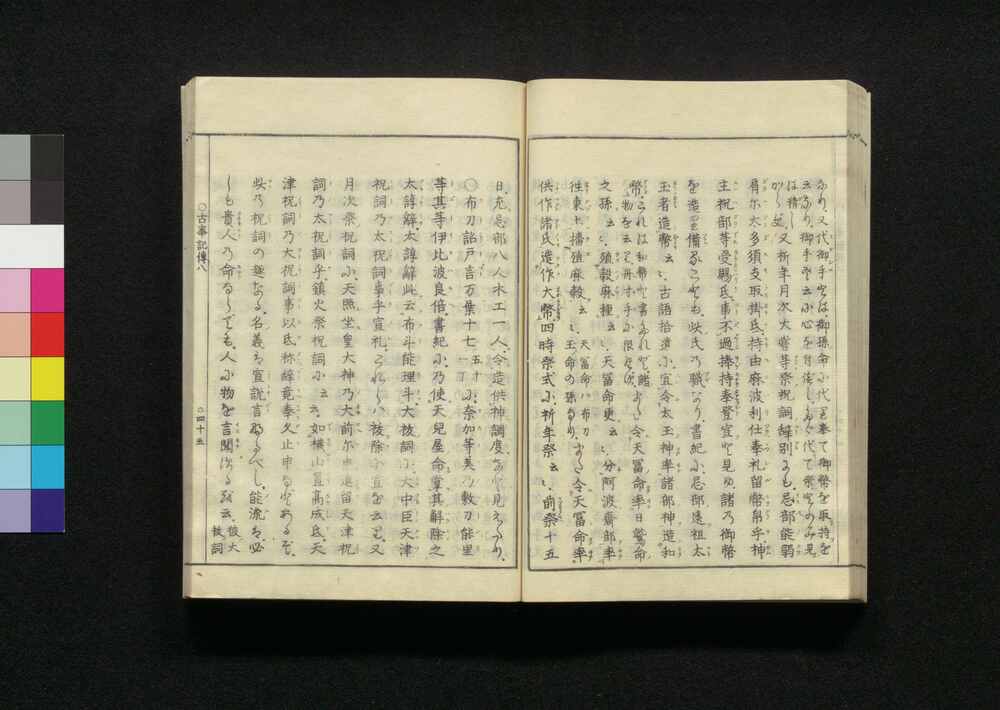 又代御手とは御孫命に代て御幣を取持を
又祈年月次大嘗等祭祝詞辞別にも忌部能弱
肩尓太多須支取掛氐持由麻波利仕奉礼留幣帛乎神
主祝部等受賜氐事不過捧持奉登宣と見ゆ諸乃御幣
を造り備ることも此氏乃職なり書紀に忌部遠祖太
玉者造幣云々古語拾遺に宜令太玉神率諸部神造和
幣
之孫云々殖穀麻種云々天冨命更云々分阿波齋部率
往東土播殖麻穀云々天冨命ハ布刀玉命の孫なり又令天冨命率
供作諸氏造作大幣四時祭式に祈年祭云々前祭十五
日充忌部八人木工一人令造供神調度なと見えたり
○布刀詔戸言万葉十七五十丁に奈加等美乃敷刀能里
等其等伊比波良倍書紀に乃使天兒屋命掌其解除之
太諄辭太諄辭此云布斗能理斗大祓詞に大中臣天津
祝詞乃太祝詞事乎宣礼
月次祭祝詞に天照坐皇大神乃大前尓申進留天津祝
詞乃太祝詞乎鎮火祭祝詞に云々如横山置高成氐天
津祝詞乃太祝詞事以氐称辭竟奉久止申なとあるそ
此乃祝詞の趣なる名義は宣説言なるへし能流は必
しも貴人乃命るならても人に物を言聞するを云大祓詞
○古事記傳八
○四十五